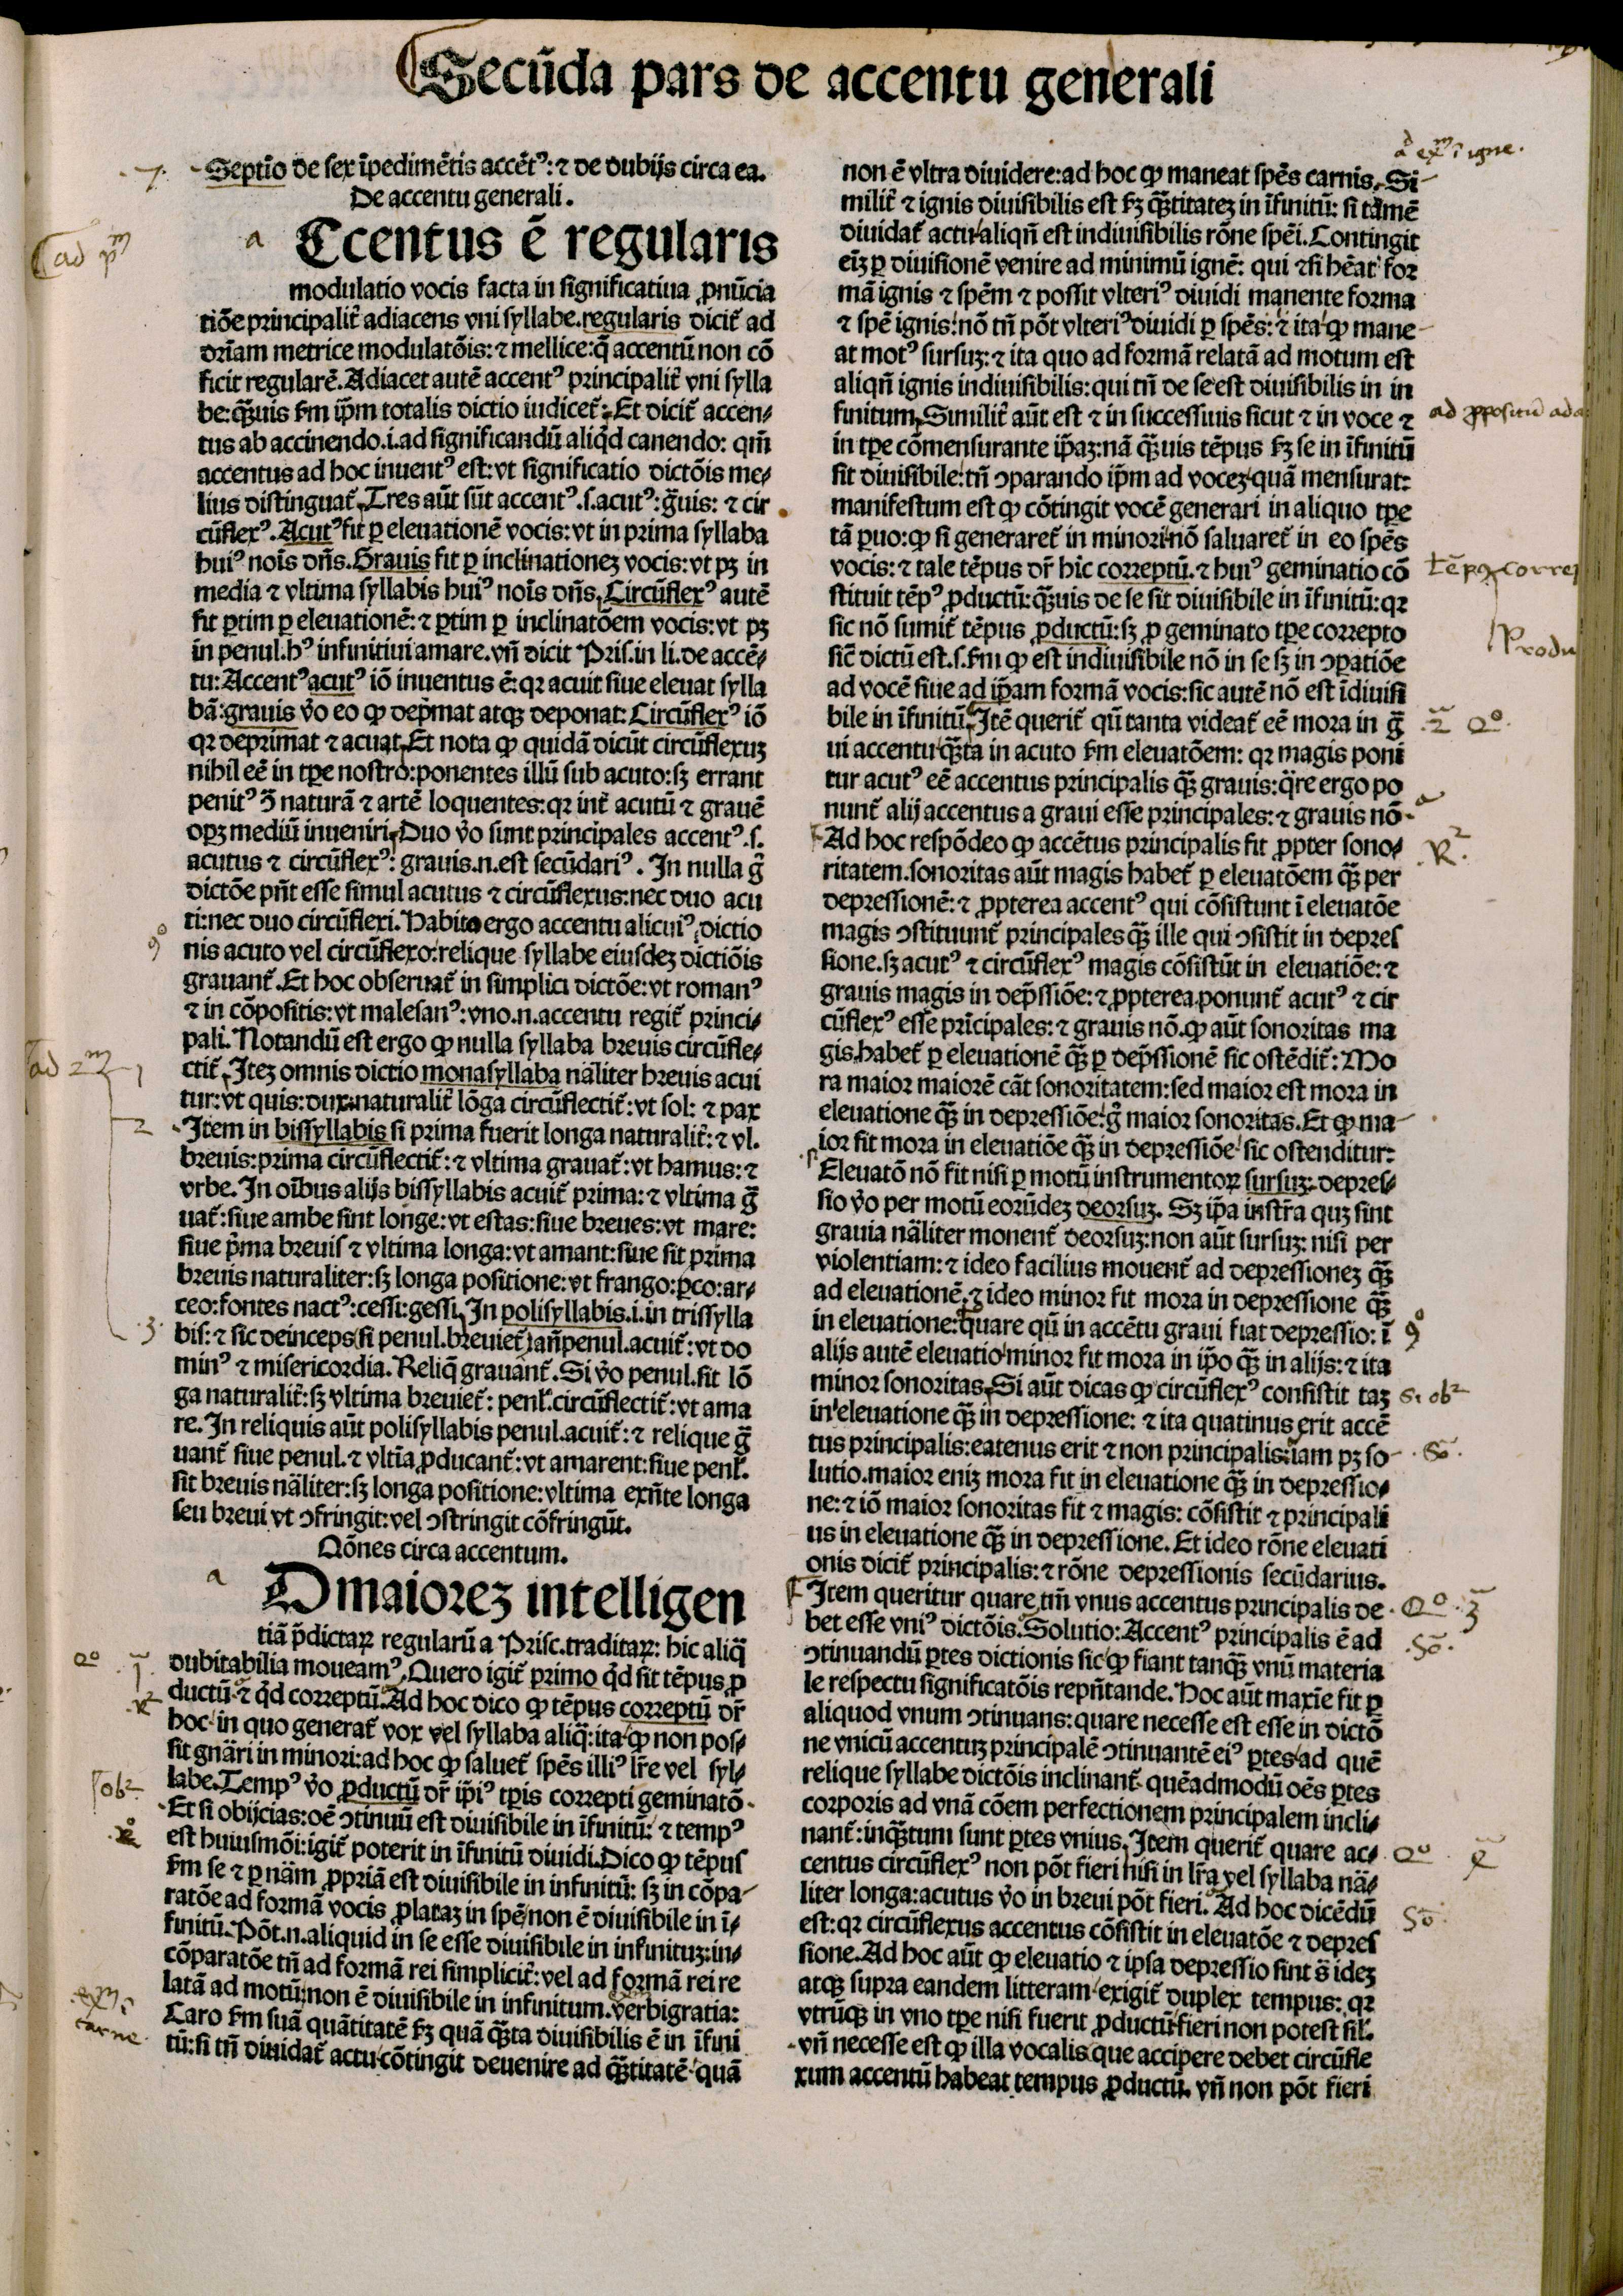 Secũda pars de accentu generali
Septĩo de sex ĩpedimẽtis accẽtꝰ: ⁊ de dubijs circa ea.
De accentu generali.
a
Ccentus ẽ regularis
modulatio vocis facta in significatiua ꝓnũcia
tiõe principalit̃ adiacens vni syllabe. regularis dicit̃ ad
dr̃iam metrice modulatõis: ⁊ mellice: q̃ accentũ non cõ
ficit regularẽ. Adiacet autẽ accentꝰ principalit̃ vni sylla
be: q̃ꝫuis ẜm ip̃m totalis dictio iudicet̃. Et dicit̃ accen⸗
tus ab accinendo .i. ad significandũ aliqd̃ canendo: qm̃
accentus ad hoc inuentꝰ est: vt significatio dictõis me⸗
lius distinguat̃. Tres aũt sũt accentꝰ .s. acutꝰ: g̃uis: ⁊ cir
cũflexꝰ. Acutꝰ fit ꝑ eleuationẽ vocis: vt in prima syllaba
huiꝰ noĩs dñs. Grauis fit ꝑ inclinationeꝫ vocis: vt pꝫ in
media ⁊ vltima syllabis huiꝰ noĩs dñs. Circũflexꝰ autẽ
fit ꝑtim ꝑ eleuationẽ: ⁊ ꝑtim ꝑ inclinatõem vocis: vt pꝫ
in penul. hꝰ infinitiui amare. vñ dicit Pris. in li. de accẽ⸗
tu: Accentꝰ acutꝰ iõ inuentus ẽ: qꝛ acuit siue eleuat sylla
bã: grauis ṽo eo ꝙ dep̃mat atqꝫ deponat: Circũflexꝰ iõ
qꝛ deprimat ⁊ acuat. Et nota ꝙ quidã dicũt circũflexuꝫ
nihil eẽ in tꝑe nostro: ponentes illũ sub acuto: sꝫ errant
penitꝰ ↄ̃ naturã ⁊ artẽ loquentes: qꝛ int̃ acutũ ⁊ grauẽ
opꝫ mediũ inueniri. Duo ṽo sunt principales accentꝰ .s.
acutus ⁊ circũflexꝰ: grauis .n. est secũdariꝰ. In nulla g̃
dictõe pñt esse simul acutus ⁊ circũflexus: nec duo acu
ti: nec duo circũflexi. Habito ergo accentu alicuiꝰ dictio
nis acuto vel circũflexo: relique syllabe eiusdeꝫ dictiõis
grauant̃. Et hoc obseruat̃ in simplici dictõe: vt romanꝰ
⁊ in cõpositis: vt malesanꝰ: vno .n. accentu regit̃ princi⸗
pali. Notandũ est ergo ꝙ nulla syllaba breuis circũfle⸗
ctit̃. Iteꝫ omnis dictio monasyllaba nãliter breuis acui
tur: vt quis: dux: naturalit̃ lõga circũflectit̃: vt sol: ⁊ pax
Item in bissyllabis si prima fuerit longa naturalit̃: ⁊ vl.
breuis: prima circũflectit̃: ⁊ vltima grauat̃: vt hamus: ⁊
vrbe. In oĩbus alijs bissyllabis acuit̃ prima: ⁊ vltima g̃
uat̃: siue ambe sint longe: vt estas: siue breues: vt mare:
siue p̃ma breuis ⁊ vltima longa: vt amant: siue sit prima
breuis naturaliter: sꝫ longa positione: vt frango: ꝑco: ar⸗
ceo: fontes nactꝰ: cessi: gessi. In polisyllabis .i. in trissylla
bis: ⁊ sic deinceps si penul. breuiet̃ añpenul. acuit̃: vt do
minꝰ ⁊ misericordia. Reliq̃ grauãnt̃. Si ṽo penul. sit lõ
ga naturalit̃: sꝫ vltima breuiet̃: penl̃. circũflectit̃: vt ama
re. In reliquis aũt polisyllabis penul. acuit̃: ⁊ relique g̃
uant̃ siue penul. ⁊ vltĩa ꝓducant̃: vt amarent: siue penl̃.
sit breuis nãliter: sꝫ longa positione: vltima exñte longa
seu breui vt ↄfringit: vel ↄstringit cõfringũt.
Qõnes circa accentum.
a
D maioreꝫ intelligen
tiã p̃dictaꝝ regularũ a Prisc. traditaꝝ: hic aliq̃
dubitabilia moueamꝰ. Quero igit̃ primo qd̃ sit tẽpus ꝓ
ductũ ⁊ qd̃ correptũ. Ad hoc dico ꝙ tẽpus correptũ dr̃
hoc in quo generat̃ vox vel syllaba aliq̃: ita ꝙ non pos⸗
sit gñari in minori: ad hoc ꝙ saluet̃ spẽs illiꝰ lr̃e vel syl⸗
labe. Tempꝰ ṽo ꝓductũ dr̃ ip̃iꝰ tꝑis correpti geminatõ
Et si obijcias: oẽ ↄtinuũ est diuisibile in ĩfinitũ: ⁊ tempꝰ
est huiusmõi: igit̃ poterit in ĩfinitũ diuidi. Dico ꝙ tẽpus
ẜm se ⁊ ꝑ nãm ꝓpriã est diuisibile in infinitũ: sꝫ in cõpa
ratõe ad formã vocis ꝓlataꝫ in spẽ non ẽ diuisibile in ĩ⸗
finitũ. Põt .n. aliquid in se esse diuisibile in infinituꝫ: in⸗
cõparatõe tñ ad formã rei simplicit̃: vel ad formã rei re
latã ad motũ: non ẽ diuisibile in infinitum. verbigratia:
Caro ẜm suã quãtitatẽ ẜꝫ quã q̃ꝫta diuisibilis ẽ in ĩfini
tũ: si tñ diuidat̃ actu cõtingit deuenire ad q̃ꝫtitatẽ quã
non ẽ vltra diuidere: ad hoc ꝙ maneat spẽs carnis. Si
milit̃ ⁊ ignis diuisibilis est ẜꝫ q̃ꝫtitateꝫ in ĩfinitũ: si tamẽ
diuidat̃ actu aliqñ est indiuisibilis rõne spẽi. Contingit
eĩꝫ ꝑ diuisionẽ venire ad minimũ ignẽ: qui ⁊si hẽat for
mã ignis ⁊ spẽm ⁊ possit vlteriꝰ diuidi manente forma
⁊ spẽ ignis: nõ tñ põt vlteriꝰ diuidi ꝑ spẽs: ⁊ ita ꝙ mane
at motꝰ sursuꝫ: ⁊ ita quo ad formã relatã ad motum est
aliqñ ignis indiuisibilis: qui tñ de se est diuisibilis in in
finitum. Similit̃ aũt est ⁊ in successiuis sicut ⁊ in voce ⁊
in tꝑe cõmensurante ip̃aꝫ: nã q̃ꝫuis tẽpus ẜꝫ se in ĩfinitũ
sit diuisibile: tñ ↄparando ip̃m ad voceꝫ quã mensurat:
manifestum est ꝙ cõtingit vocẽ generari in aliquo tꝑe
tã ꝑuo: ꝙ si generaret̃ in minori nõ saluaret̃ in eo spẽs
vocis: ⁊ tale tẽpus dr̃ hic correptũ. ⁊ huiꝰ geminatio cõ
stituit tẽpꝰ ꝓductũ: q̃ꝫuis de se sit diuisibile in ĩfinitũ: qꝛ
sic nõ sumit̃ tẽpus ꝓductũ: sꝫ ꝓ geminato tꝑe correpto
sic̃ dictũ est .s. ẜm ꝙ est indiuisibile nõ in se sꝫ in ↄꝑatiõe
ad vocẽ siue ad ip̃am formã vocis: sic autẽ nõ est ĩdiuisi
bile in ĩfinitũ. Itẽ querit̃ qũ tanta videat̃ eẽ mora in g̃
ui accentu q̃ꝫta in acuto ẜm eleuatõem: qꝛ magis poni
tur acutꝰ eẽ accentus principalis q̃ꝫ grauis: q̃re ergo po
nunt̃ alij accentus a graui esse principales: ⁊ grauis nõ
Ad hoc respõdeo ꝙ accẽtus principalis fit ꝓpter sono⸗
ritatem. sonoritas aũt magis habet̃ ꝑ eleuatõem q̃ꝫ per
depressionẽ: ⁊ ꝓpterea accentꝰ qui cõsistunt ĩ eleuatõe
magis ↄstituunt̃ principales q̃ꝫ ille qui ↄsistit in depres
sione. sꝫ acutꝰ ⁊ circũflexꝰ magis cõsistũt in eleuatiõe: ⁊
grauis magis in dep̃ssiõe: ⁊ ꝓpterea ponunt̃ acutꝰ ⁊ cir
cũflexꝰ esse pr̃icipales: ⁊ grauis nõ. ꝙ aũt sonoritas ma
gis habet̃ ꝑ eleuationẽ q̃ꝫ ꝑ dep̃ssionẽ sic ostẽdit̃: Mo
ra maior maiorẽ cãt sonoritatem: sed maior est mora in
eleuatione q̃ꝫ in depressiõe: g̃ maior sonoritas. Et ꝙ ma
ior fit mora in eleuatiõe q̃ꝫ in depressiõe sic ostenditur:
Eleuatõ nõ fit nisi ꝑ motũ instrumentoꝝ sursuꝫ: depres⸗
sio ṽo per motũ eorũdeꝫ deorsuꝫ. Sꝫ ip̃a instr̃a quꝫ sint
grauia nãliter mouent̃ deorsuꝫ: non aũt sursuꝫ: nisi per
violentiam: ⁊ ideo facilius mouent̃ ad depressioneꝫ q̃ꝫ
ad eleuationẽ. ⁊ ideo minor fit mora in depressione q̃ꝫ
in eleuatione: quare qũ in accẽtu graui fiat depressio: ĩ
alijs autẽ eleuatio minor fit mora in ip̃o q̃ꝫ in alijs: ⁊ ita
minor sonoritas. Si aũt dicas ꝙ circũflexꝰ consistit taꝫ
in eleuatione q̃ꝫ in depressione: ⁊ ita quatinus erit accẽ
tus principalis: eatenus erit ⁊ non principalis: iam pꝫ so
lutio. maior eniꝫ mora fit in eleuatione q̃ꝫ in depressio⸗
ne: ⁊ iõ maior sonoritas fit ⁊ magis: cõsistit ⁊ principali
us in eleuatione q̃ꝫ in depressione. Et ideo rõne eleuati
onis dicit̃ principalis: ⁊ rõne depressionis secũdarius.
Item queritur quare tm̃ vnus accentus principalis de
bet esse vniꝰ dictõis. Solutio: Accentꝰ principalis ẽ ad
ↄtinuandũ ꝑtes dictionis sic ꝙ fiant tanq̃ꝫ vnũ materia
le respectu significatõis repñtande. Hoc aũt maxĩe fit ꝑ
aliquod vnum ↄtinuans: quare necesse est esse in dictõ
ne vnicũ accentuꝫ principalẽ ↄtinuantẽ eiꝰ ꝑtes ad quẽ
relique syllabe dictõis inclinant̃ quẽadmodũ oẽs ꝑtes
corporis ad vnã cõem perfectionem principalem incli⸗
nant̃: inq̃ꝫtum sunt ꝑtes vnius. Item querit̃ quare ac⸗
centus circũflexꝰ non põt fieri nisi in lr̃a vel syllaba nã⸗
liter longa: acutus ṽo in breui põt fieri. Ad hoc dicẽdũ
est: qꝛ circũflexus accentus cõsistit in eleuatõe ⁊ depres
sione. Ad hoc aũt ꝙ eleuatio ⁊ ipsa depressio sint s̃ ideꝫ
atqꝫ supra eandem litteram exigit̃ duplex tempus: qꝛ
vtrũqꝫ in vno tꝑe nisi fuerit ꝓductũ fieri non potest sil̃.
vñ necesse est ꝙ illa vocalis que accipere debet circũfle
xum accentũ habeat tempus ꝓductũ. vñ non põt fieri
.7.
ad pm
ad 2m
1
2
.3.
ob2
exm
carne
ex igne.
ad ꝓpositũ
tẽpꝰ
corre
Produ
2 Qo.
R2.
s. ob2
So.
Qo. 3
So.
Qo.
So